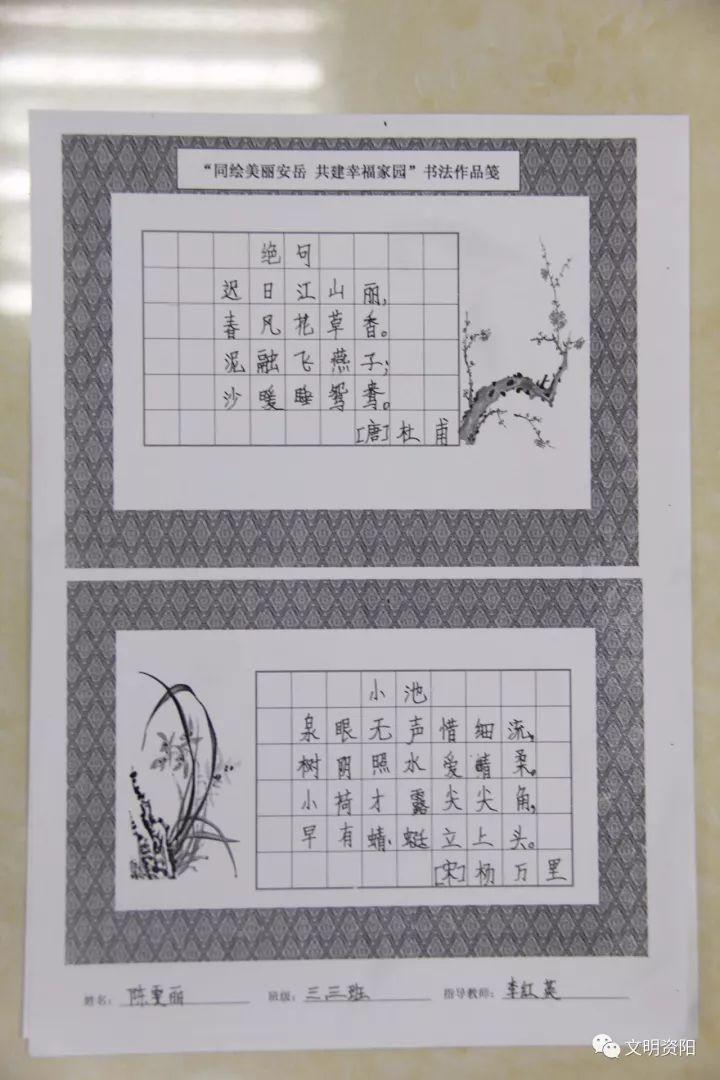 “同绘美丽安岳 共建幸福家园”书法作品笺
绝句
迟日江山丽,
春风花草香。
泥融飞燕子;
沙暖睡鸳鸯。
[唐]杜甫
小池
泉眼无声惜细流,
树阴照水爱晴柔。
小荷才露尖尖角,
早有蜻蜓立上头。
[宋]杨万里
姓名: 陈雯丽 班级: 三.三班 指导教师: 李红英
文明资阳